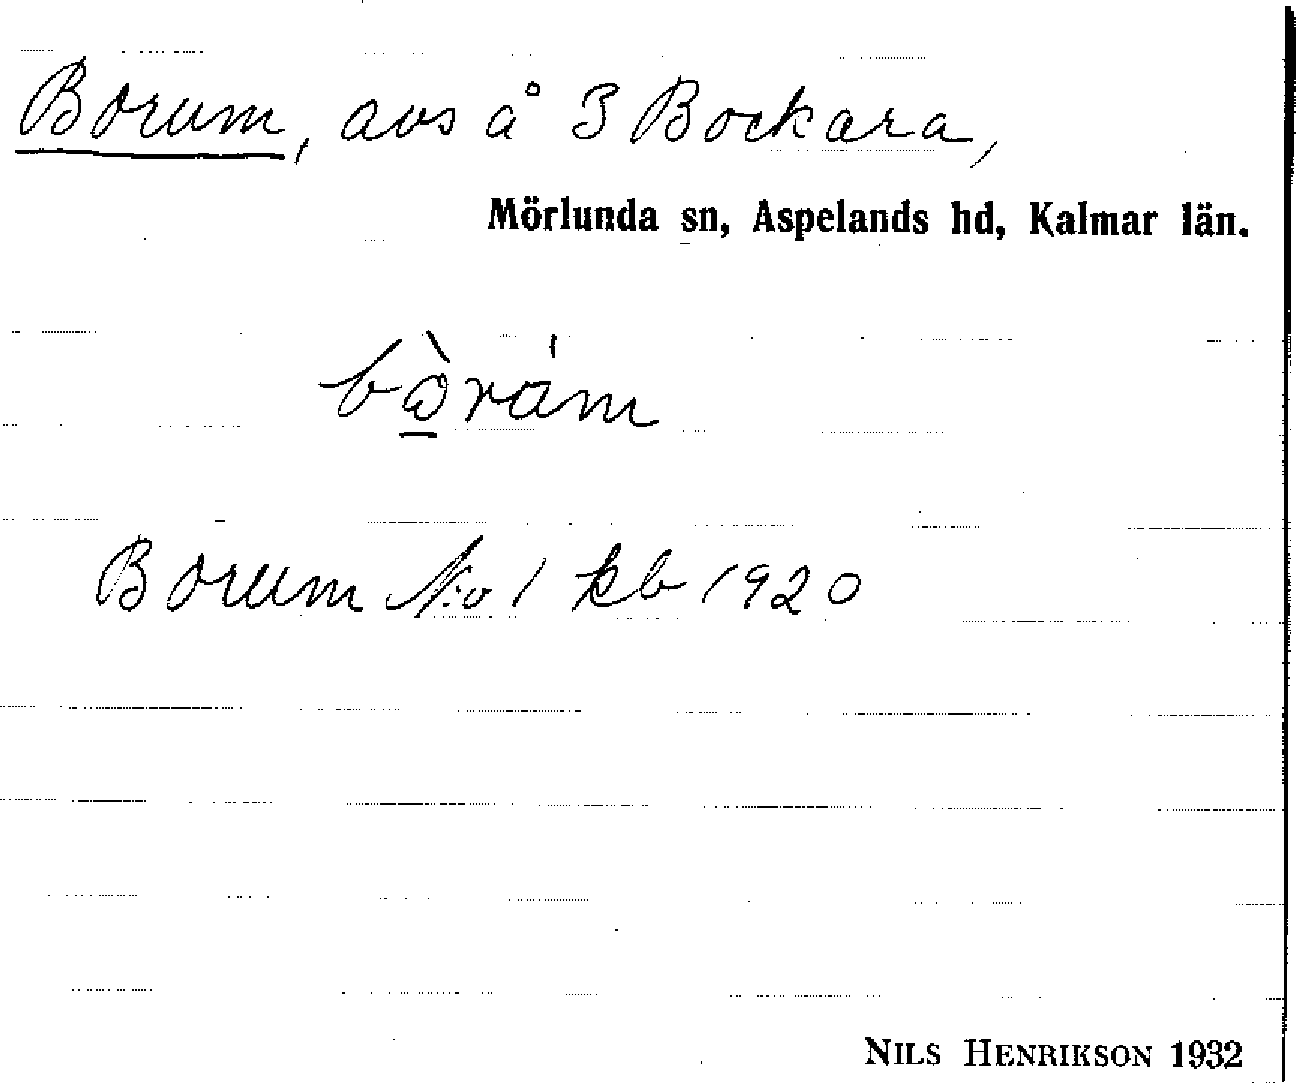 Borum, avs å 3 Bockara,
Mörlunda sn, Aspelands hd, Kalmar län.
Borum N:o 1 kb 1920
NILS HENRIKSON 1932